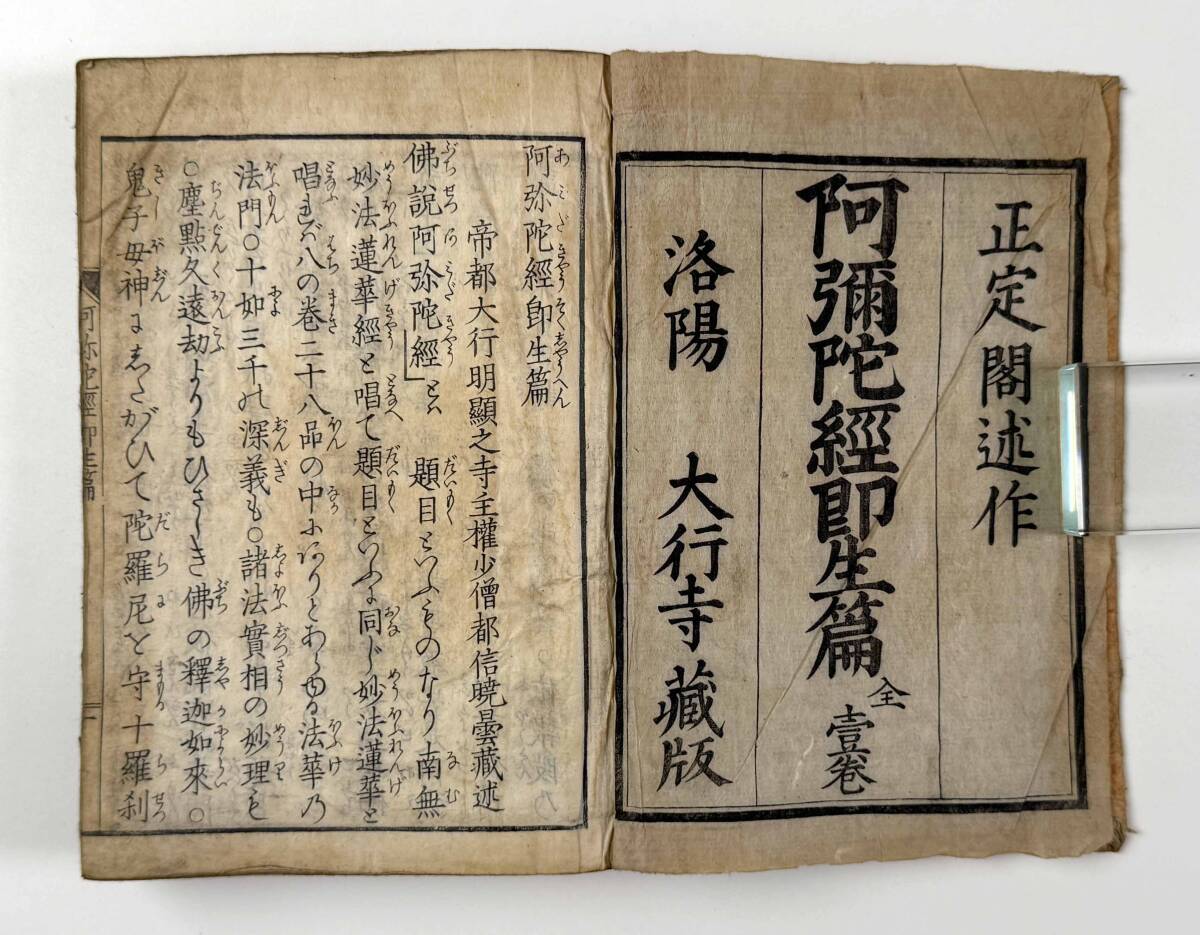 正定閣述作
阿彌陀經即生篇 全壹卷
洛陽 大行寺藏版
阿弥陀經即生篇
帝都大行明顯之寺主權少僧都信曉曇藏述
佛說阿弥陀經」とは 題目といふものなり 南無
妙法蓮華經と唱て題目といふに同じ妙法蓮華と
唱れば八の卷二十八品の中にありとあらゆる法華乃
法門○十如三千の深義も○諸法實相の妙理も
○塵點久遠劫よりもひさしき佛の釋迦如來○
鬼子母神にしたがひて陀羅尼を守十羅刹
阿弥陀經即生篇 一